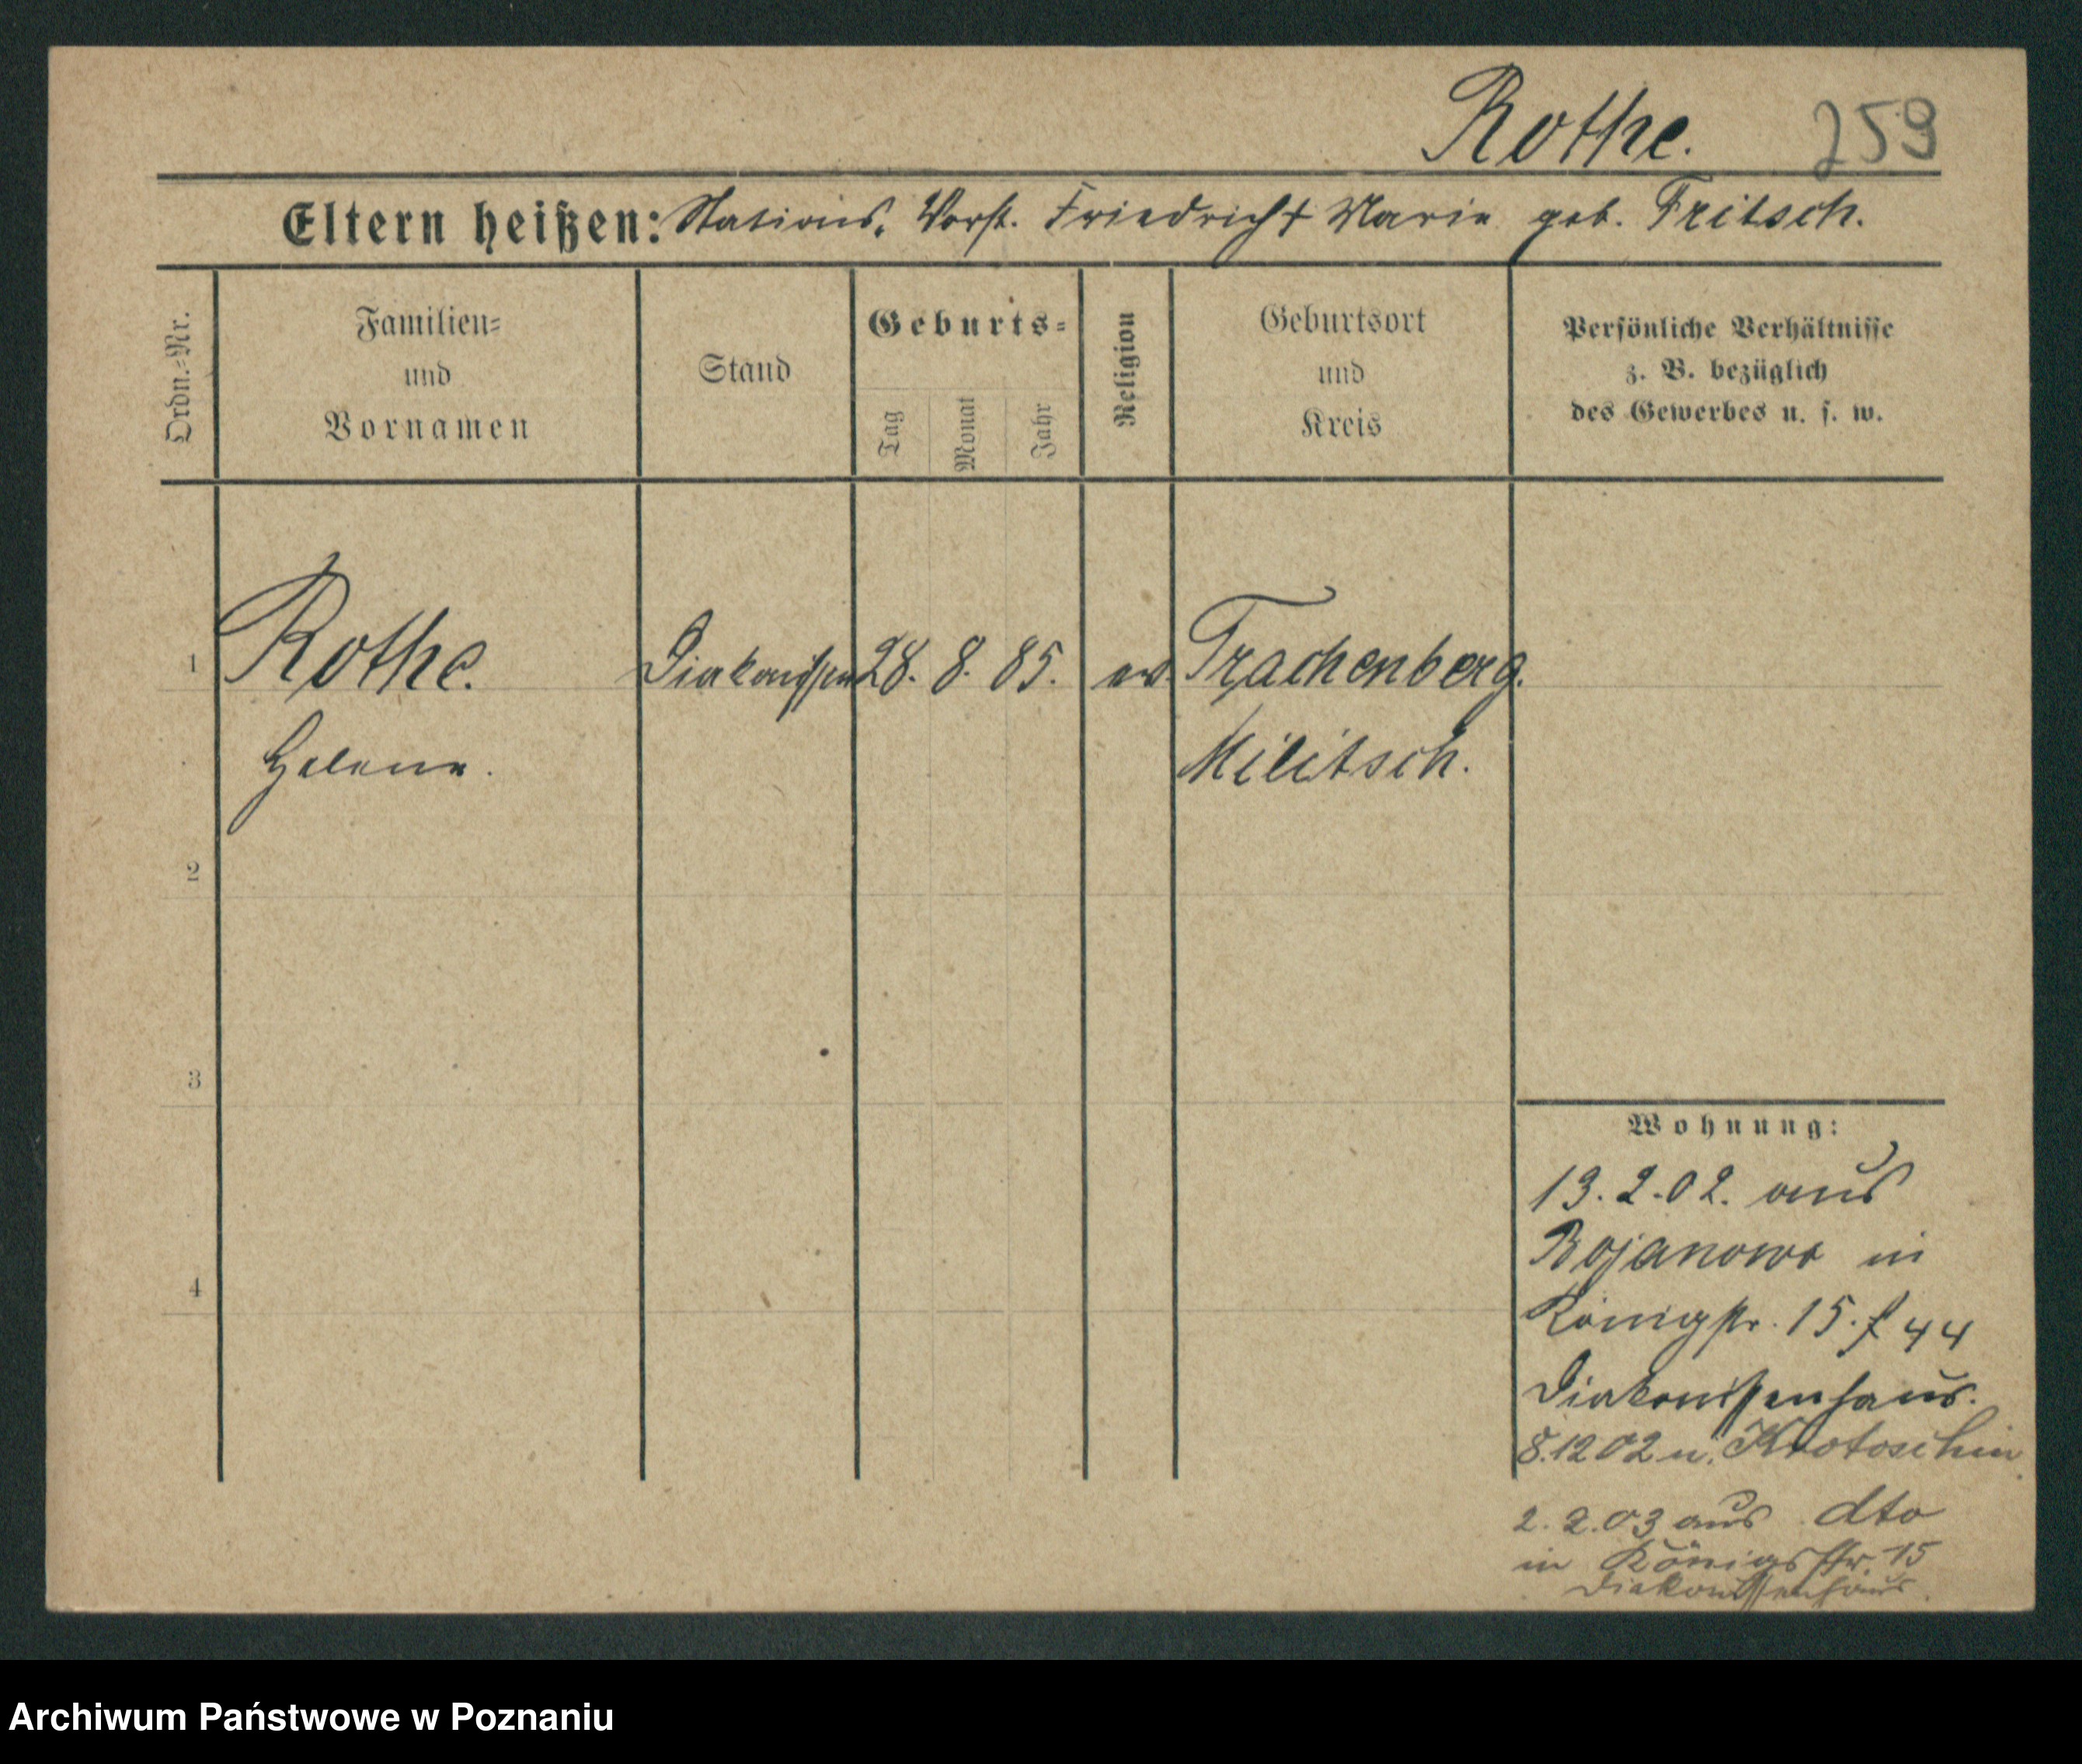 Rothe. 259
Eltern heißen: Stations. Vorst. Friedrich + Marie geb. Fritsch.
Ordn.=Nr.
Familien=
und
Vornamen
Stand
Geburts=
Tag
Monat
Jahr
Religion
Geburtsort
und
Kreis
Persönliche Verhältnisse
z. B. bezüglich
des Gewerbes u. s. w.
1 Rothe. Diakonissin 28. 8. 85. ev. Trachenberg.
Helene. Militsch.
2
3
4
Wohnung:
13.2.02. aus
Bojanowo in
Königstr. 15. f 44
Diakonissenhaus.
8.12 02 n. Krotoschin
2.2.03 aus dto
in Königsstr. 15
Diakonissenhaus.
Archiwum Państwowe w Poznaniu